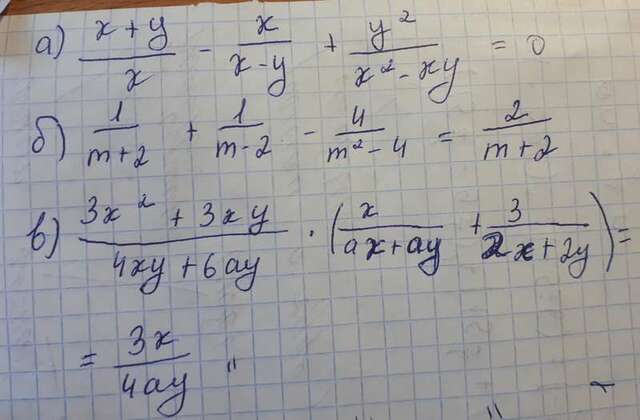 а) (x + y)/x - x/(x - y) + y²/(x² - xy) = 0
б) 1/(m + 2) + 1/(m - 2) - 4/(m² - 4) = 2/(m + 2)
в) (3x² + 3xy)/(4xy + 6ay) · (x/(ax + ay) + 3/(2x + 2y)) =
= 3x/(4ay)